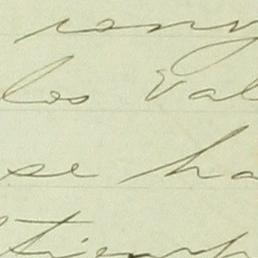 los Val
se ha
tiemp